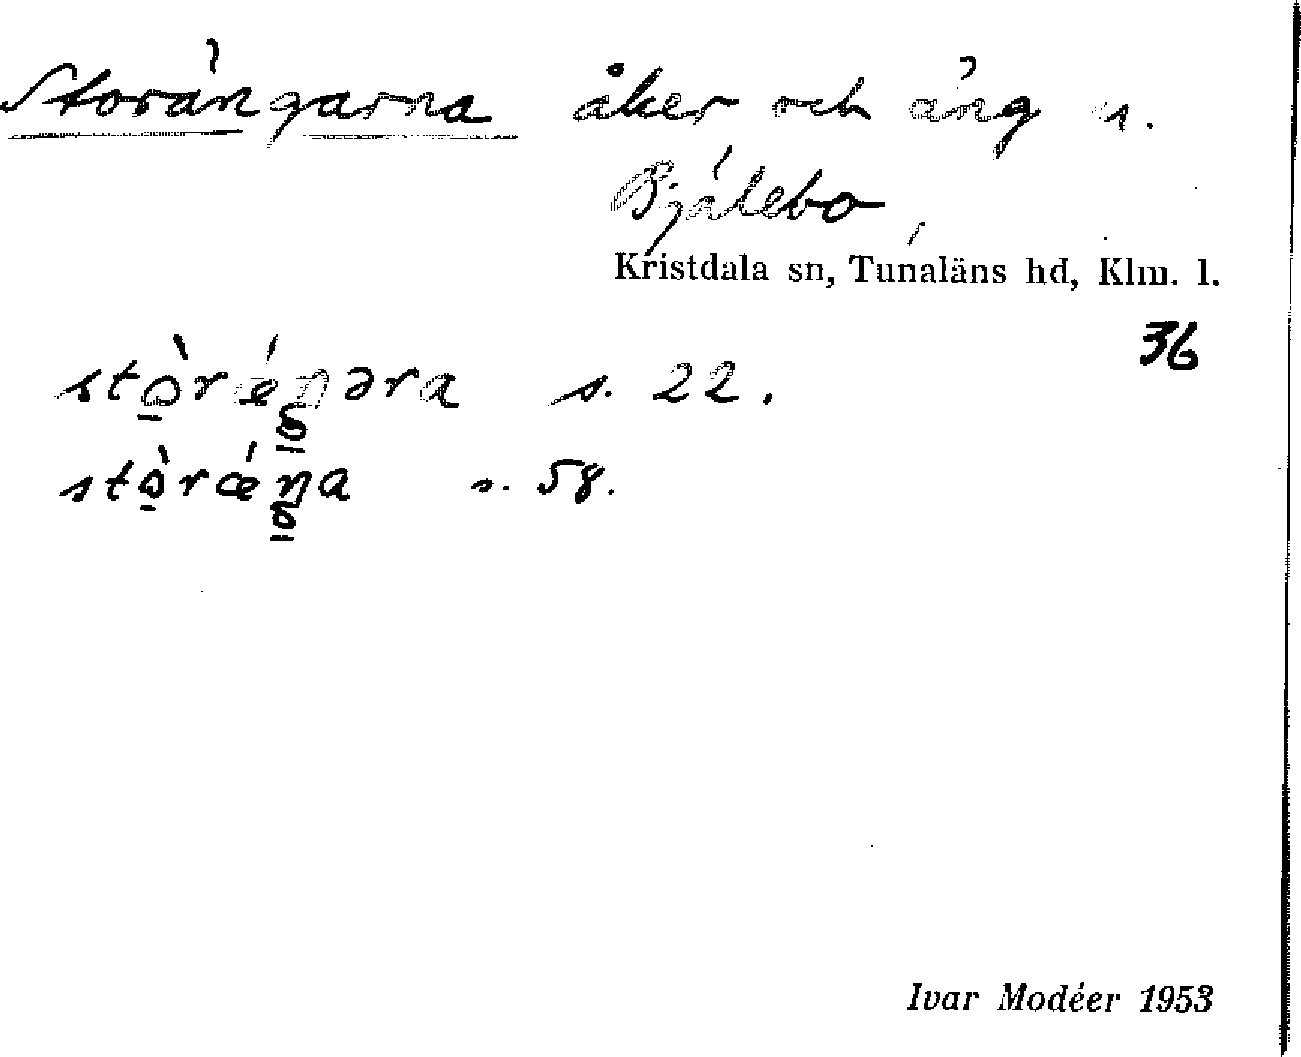 Storängarna åker och äng n.
Bjälebo
Kristdala sn, Tunaläns hd, Klm. l.
36
stò̠rǽŋəra s. 22.
stò̠rǽŋa s. 58.
Ivar Modéer 1953